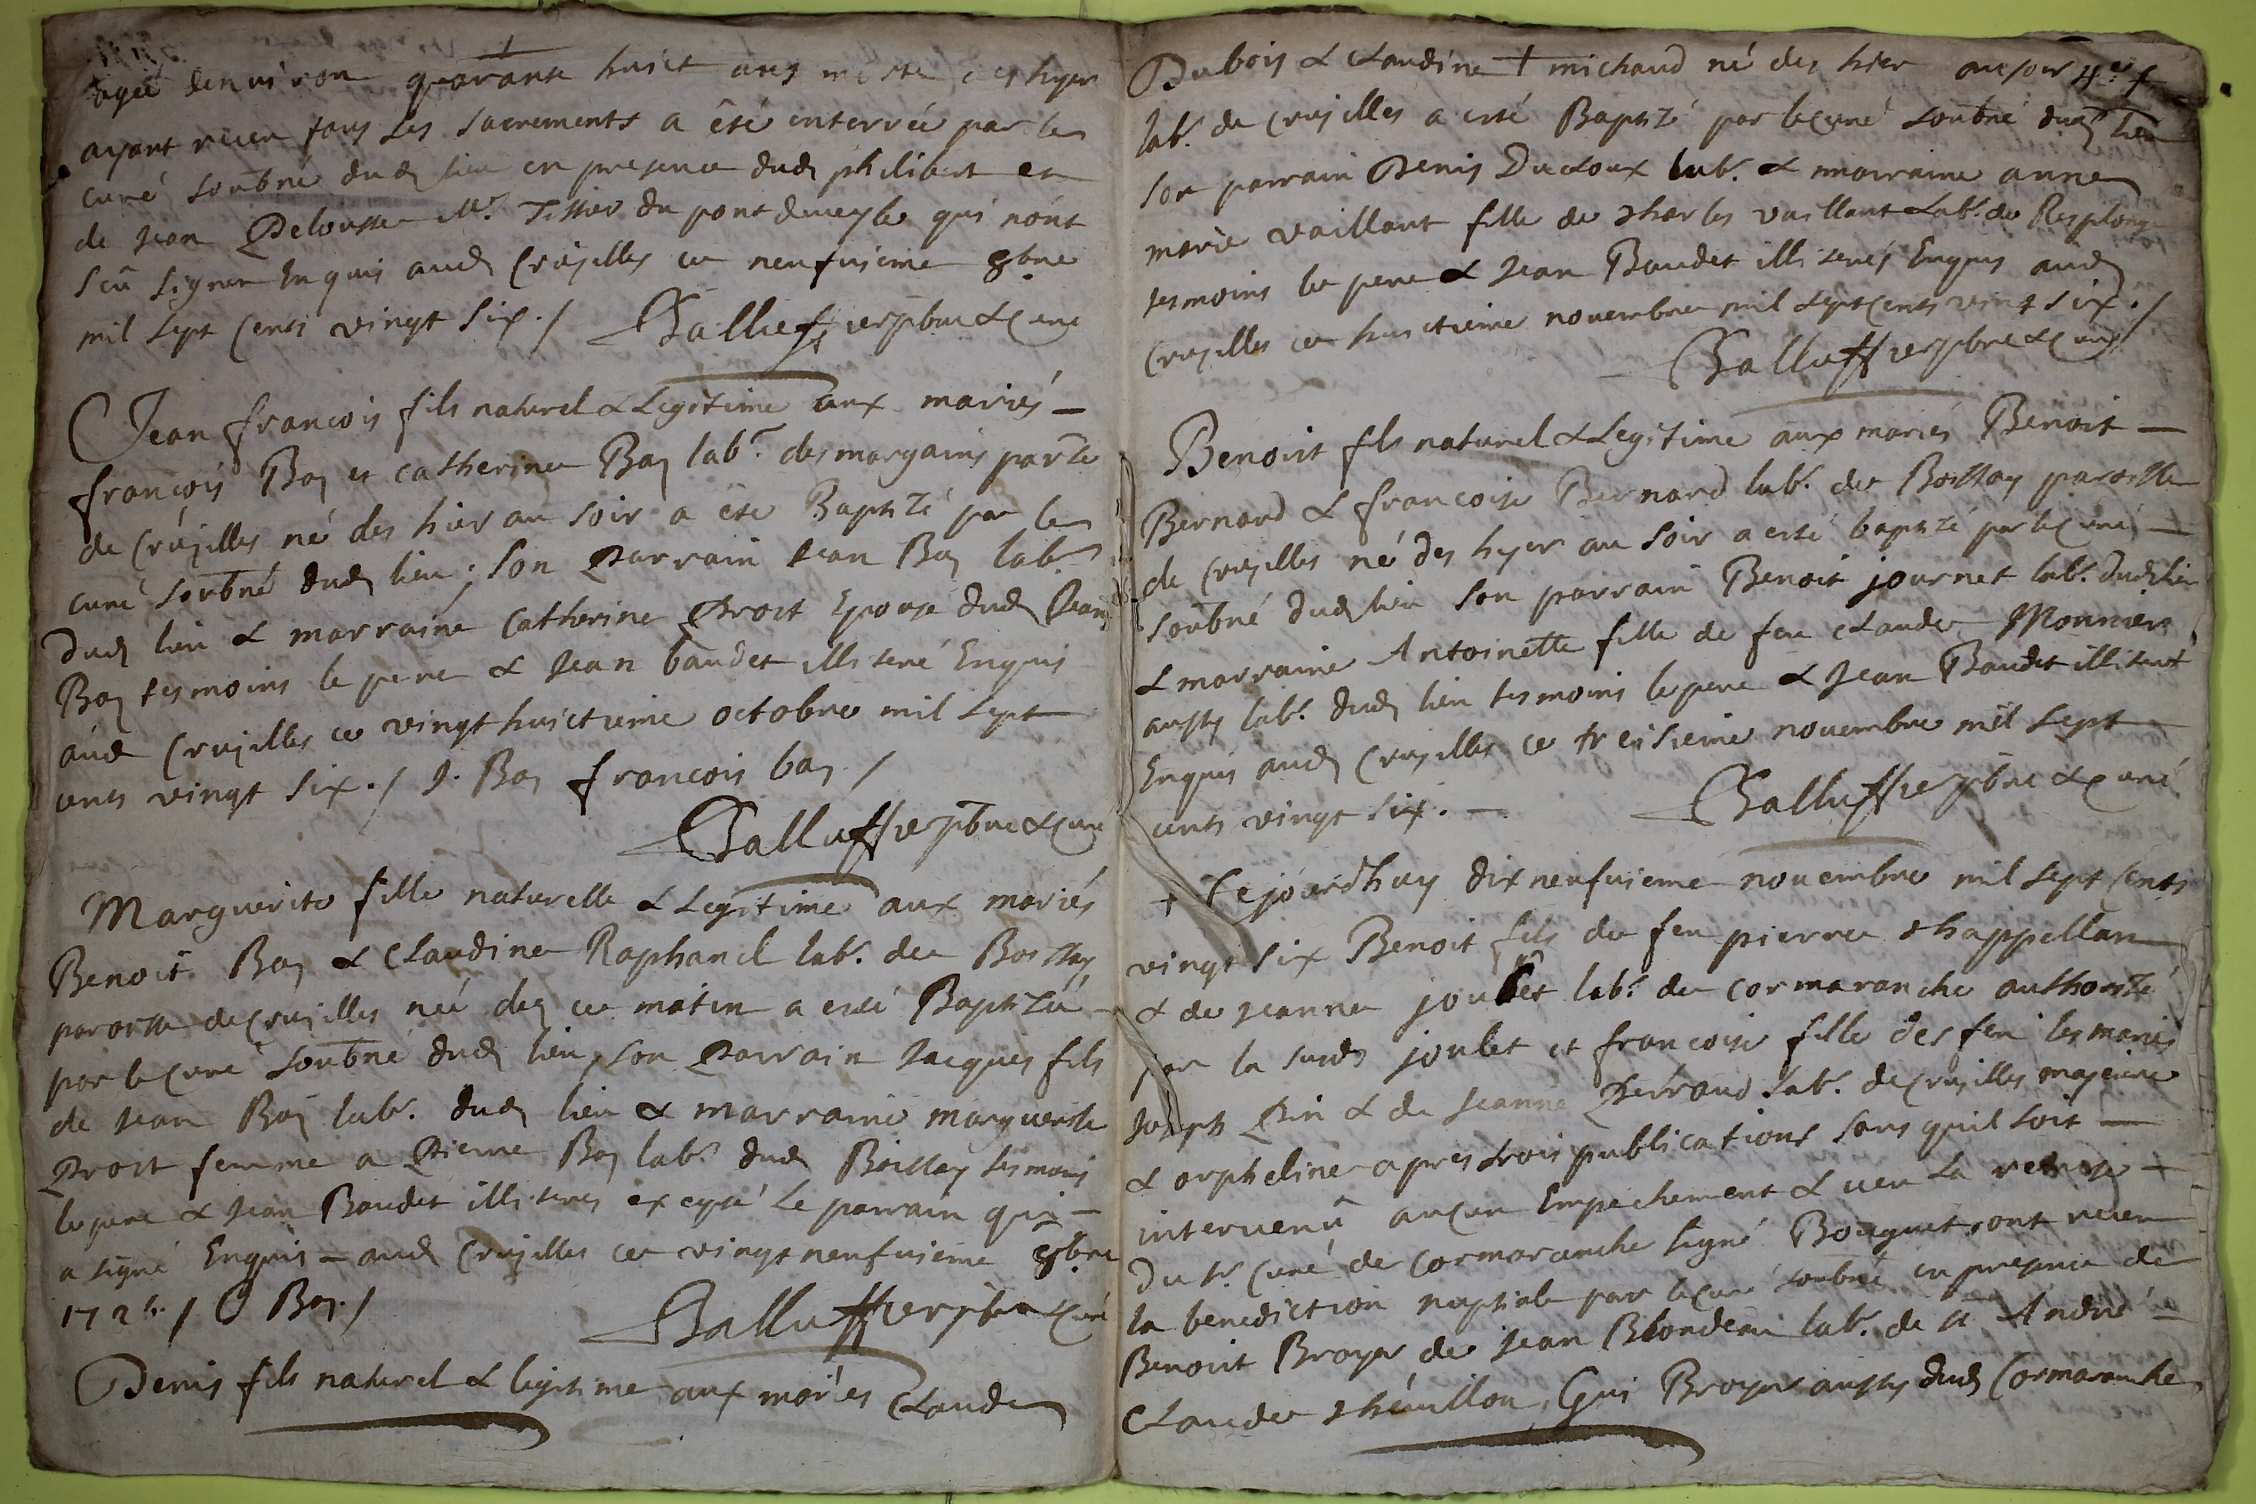 agée denuiron quarante huict ans morte des hyer
ayant receu tous les sacrements a été enterrée par le
curé soubné dud lieu en presence dud philibert et
de Jean Delousse Mr Tissier du pont deueyle qui nont
sçû signer Enquis aud Crujilles ce neufuieme 8bre
mil sept Cents vingt six ./ Balluffier pbre & Curé
Jean francois fils naturel & Legitime aux mariés —
françois Boy et catherine Boy labr. des margains parse
de Crujilles né des hier au soir a été Baptizé par le
curé soubné dud lieu ; son Parrain Jean Boy labr.
dud lieu & marraine Catherine Prost Epouse dud Jean
Boy tesmoins le pere & Jean baudet illiteré Enquis
aud Crujilles ce vingt huictieme octobre mil sept
cents vingt six ./ J. Boy francois boy /
Balluffier pbre & Curé
Marguerite fille naturelle & Legitime aux mariés
Benoit Boy & Claudine Raphanel labr. de Boissey
paroisse de Crujilles née des ce matin a esté Baptizée
par le Curé soubné dud lieu, son Parrain Jacques fils
de Jean Boy labr. dud lieu & marraine marguerite
Prost femme a Pierre Boy labr. dud Boissey tesmoins
le pere & Jean Baudet illiterés excepté le parrain qui —
a signé Enquis — aud Crujilles ce vingt neufuieme 8bre
1726 / Boy ./
Balluffier pbre & Curé
Denis fils naturel & legitime aux mariés Claude
Dubois & Claudine + michaud né des hier au soir
labr. de Crujilles a esté Baptizé par le Curé soubné dud lieu
son parrain Denis Ducloux labr. & marraine anne
marie vaillant fille de Charles vaillant Labr. de Replonge
tesmoins le pere & Jean Baudet illiterés Enquis aud
Crujilles ce huictieme novembre mil sept Cents vingt six ./
Balluffier pbre & Curé
Benoist fils naturel & Legitime aux mariés Benoit —
Bernard & francoise Bernard labr. de Boissey paroisse
de Crujilles né des hyer au soir a esté baptizé par le Curé —
soubné dud lieu son parrain Benoit journet labr. dud lieu
& marraine Antoinette fille de feu Claude Monnier
aussy labr. dud lieu tesmoins le pere & Jean Baudet illiteré
Enquis aud Crujilles ce treisieme novembre mil sept
cents vingt six . —
Balluffier pbre & Curé
+ Cejourdhuy dix neufuieme novembre mil sept Cents
vingt six Benoit fils de feu pierre Chappellan
& de Jeanne joulet labr. de Cormaranche authorizé
par la susd joulet et francoise fille des feu les mariés
Joseph Pin & de Jeanne Perraud labr. de Crujilles majeure
& orpheline apres trois publications sans quil soit —
intervenû aucun Empechement & veu la remise —
du sr Curé de Cormaranche signé Bouguet ont receu
la benediction nuptiale par le Curé soubné en presence de
Benoist Broyer de Jean Blondeau labr. de st André —
Claude Chéuillon, Gui Broyer aussy dud Cormaranche